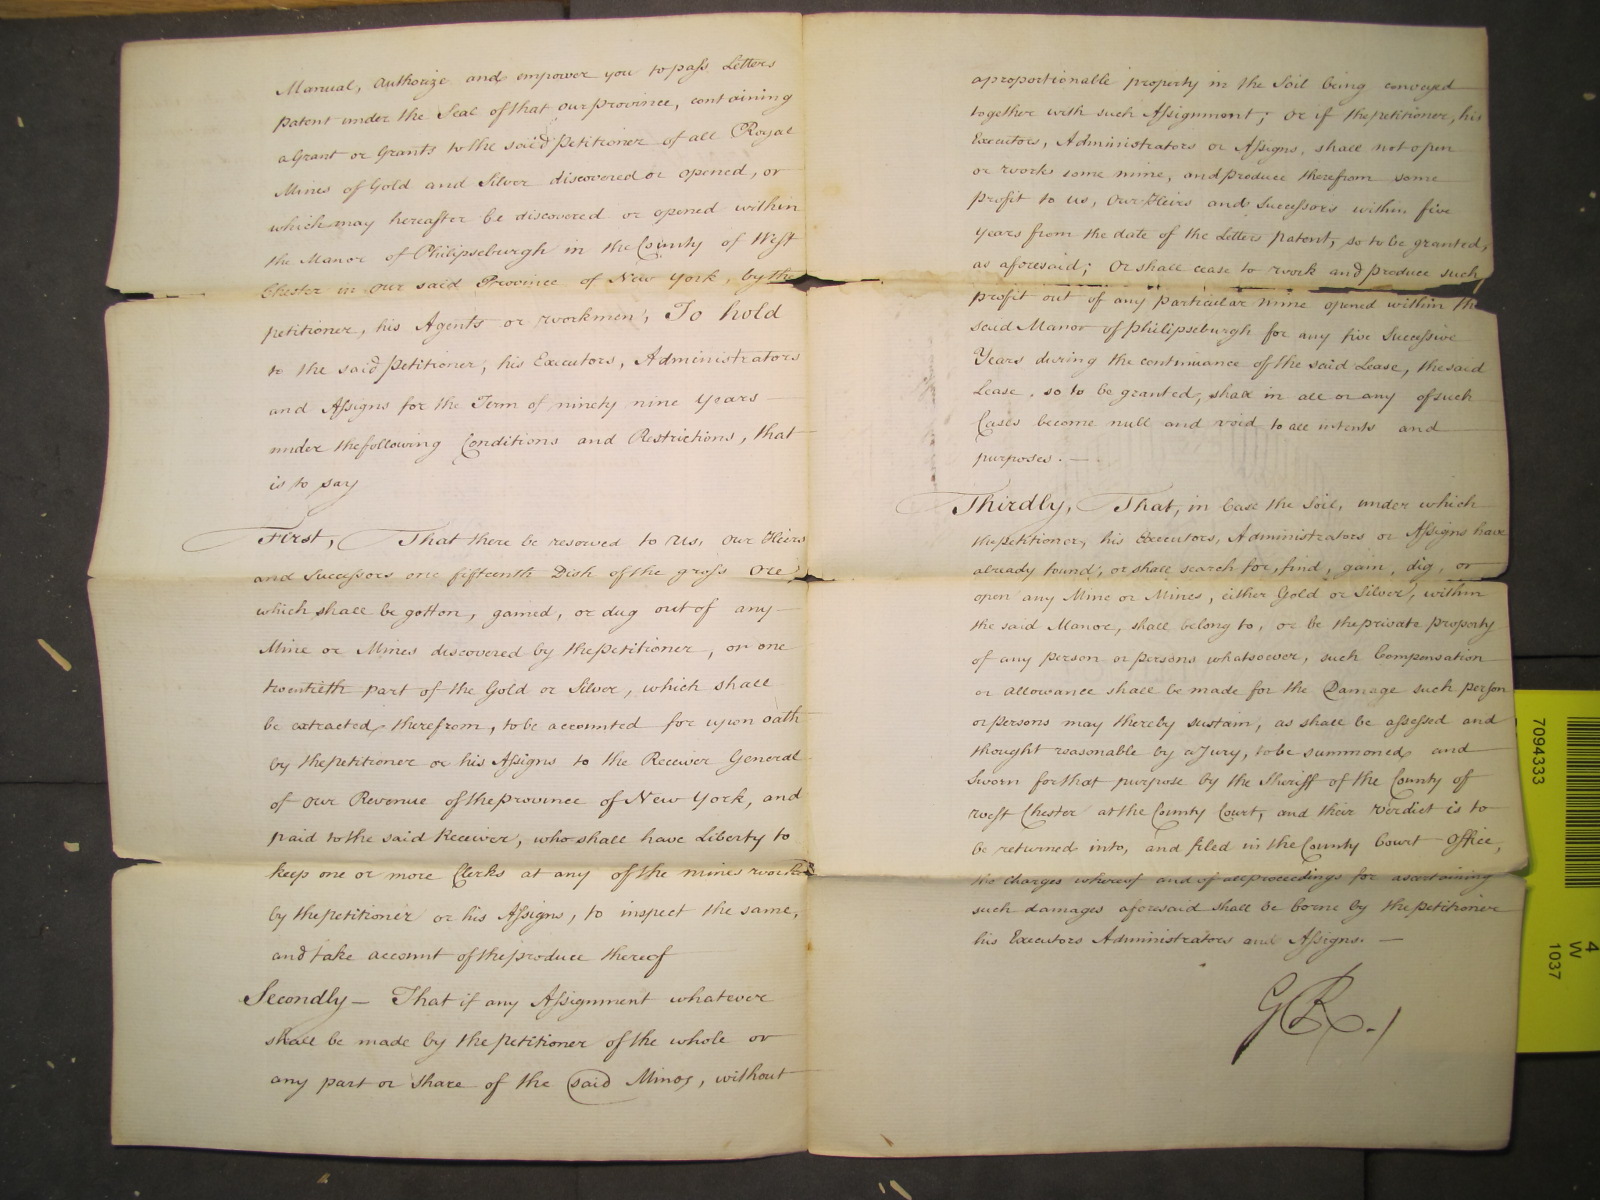 Manual, Authorize and empower you to pass Letters
patent under the Seal of that our province, containing
a Grant or Grants to the said Petitioner of all Royal
Mines of Gold and Silver discovered or opened, or
which may hereafter be discovered or opened within
the Manor of Philipseburgh in the County of West
Chester in our said Province of New York, by the
petitioner, his Agents or workmen; To hold
to the said Petitioner, his Executors, Administrators
and Assigns for the Term of ninety nine Years
under the following Conditions and Restrictions, that
is to say
First, That there be reserved to Us, our Heirs
and Successors one fifteenth Dish of the gross Ore
which shall be gotton, gained, or dug out of any
Mine or Mines discovered by the petitioner, or one
twentieth part of the Gold or Silver, which shall
be extracted therefrom, to be accounted for upon oath
by the petitioner or his Assigns to the Receiver General
of our Revenue of the province of New York, and
paid to the said Receiver, who shall have Liberty to
keep one or more Clerks at any of the mines worked
by the petitioner or his Assigns, to inspect the same,
and take account of the produce thereof
Secondly — That if any Assignment whatever
shall be made by the petitioner of the whole or
any part or share of the said Mines, without
a proportionable property in the Soil being conveyed
together with such Assignment; or if the petitioner, his
Executors, Administrators or Assigns, shall not open
or work some mine, and produce therefrom some
profit to us, our Heirs and Successors within five
years from the date of the Letters patent, so to be granted,
as aforesaid; or shall cease to work and produce such
profit out of any particular mine opened within the
said Manor of Philipseburgh for any five Successive
Years during the continuance of the said Lease, the said
Lease, so to be granted, shall in all or any of such
Cases become null and void to all intents and
purposes. —
Thirdly, That, in Case the Soil, under which
the petitioner, his Executors, Administrators or Assigns have
already found, or shall search for, find, gain, dig, or
open any Mine or Mines, either Gold or Silver, within
the said Manor, shall belong to, or be the private property
of any person or persons whatsoever, such Compensation
or allowance shall be made for the Damage such person
or persons may thereby sustain, as shall be assessed and
thought reasonable by a Jury, to be summoned and
Sworn for that purpose by the Sheriff of the County of
West Chester at the County Court, and their Verdict is to
be returned into, and filed in the County Court Office,
the Charges whereof and of all proceedings for ascertaining
such damages aforesaid shall be borne by the petitioner
his Executors Administrators and Assigns. —
GR.
7094333
4
W
1037